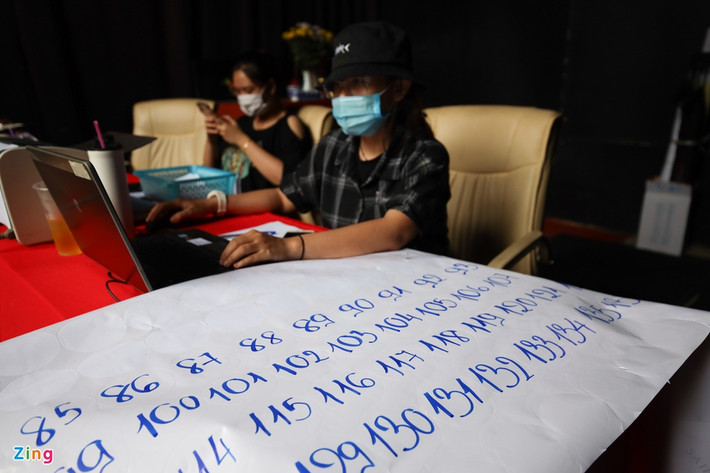 85 86 87 88 89 90 91 92 93
99 100 101 102 103 104 105 106 107
114 115 116 117 118 119 120 121
129 130 131 132 133 134 135
Zing